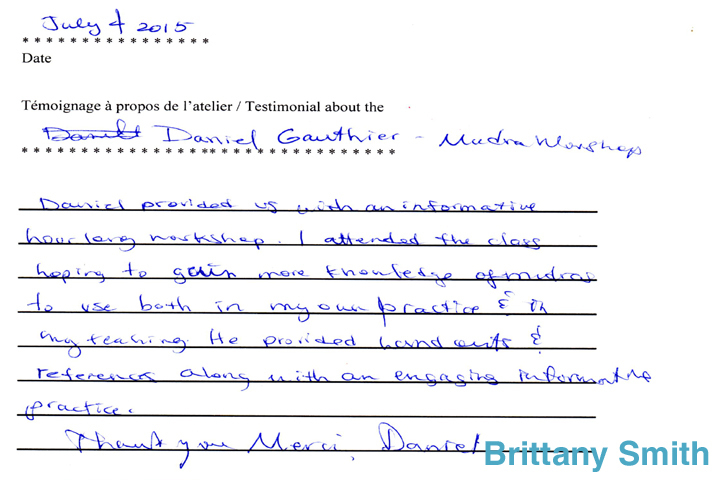 July 4 2015
* * * * * * * * * * * * * * * *
Date
Témoignage à propos de l'atelier / Testimonial about the
Daniel Daniel Gauthier - Mudra Worshop
* * * * * * * * * * * * * * * * * * * * * * * * * * * * * * * *
Daniel provided us with an informative
hour long workshop. I attended the class
hoping to gain more knowledge of mudras
to use both in my own practice & in
my teaching. He provided hand outs &
references along with an engaging informative
practice.
Thank you Merci, Daniel
Brittany Smith